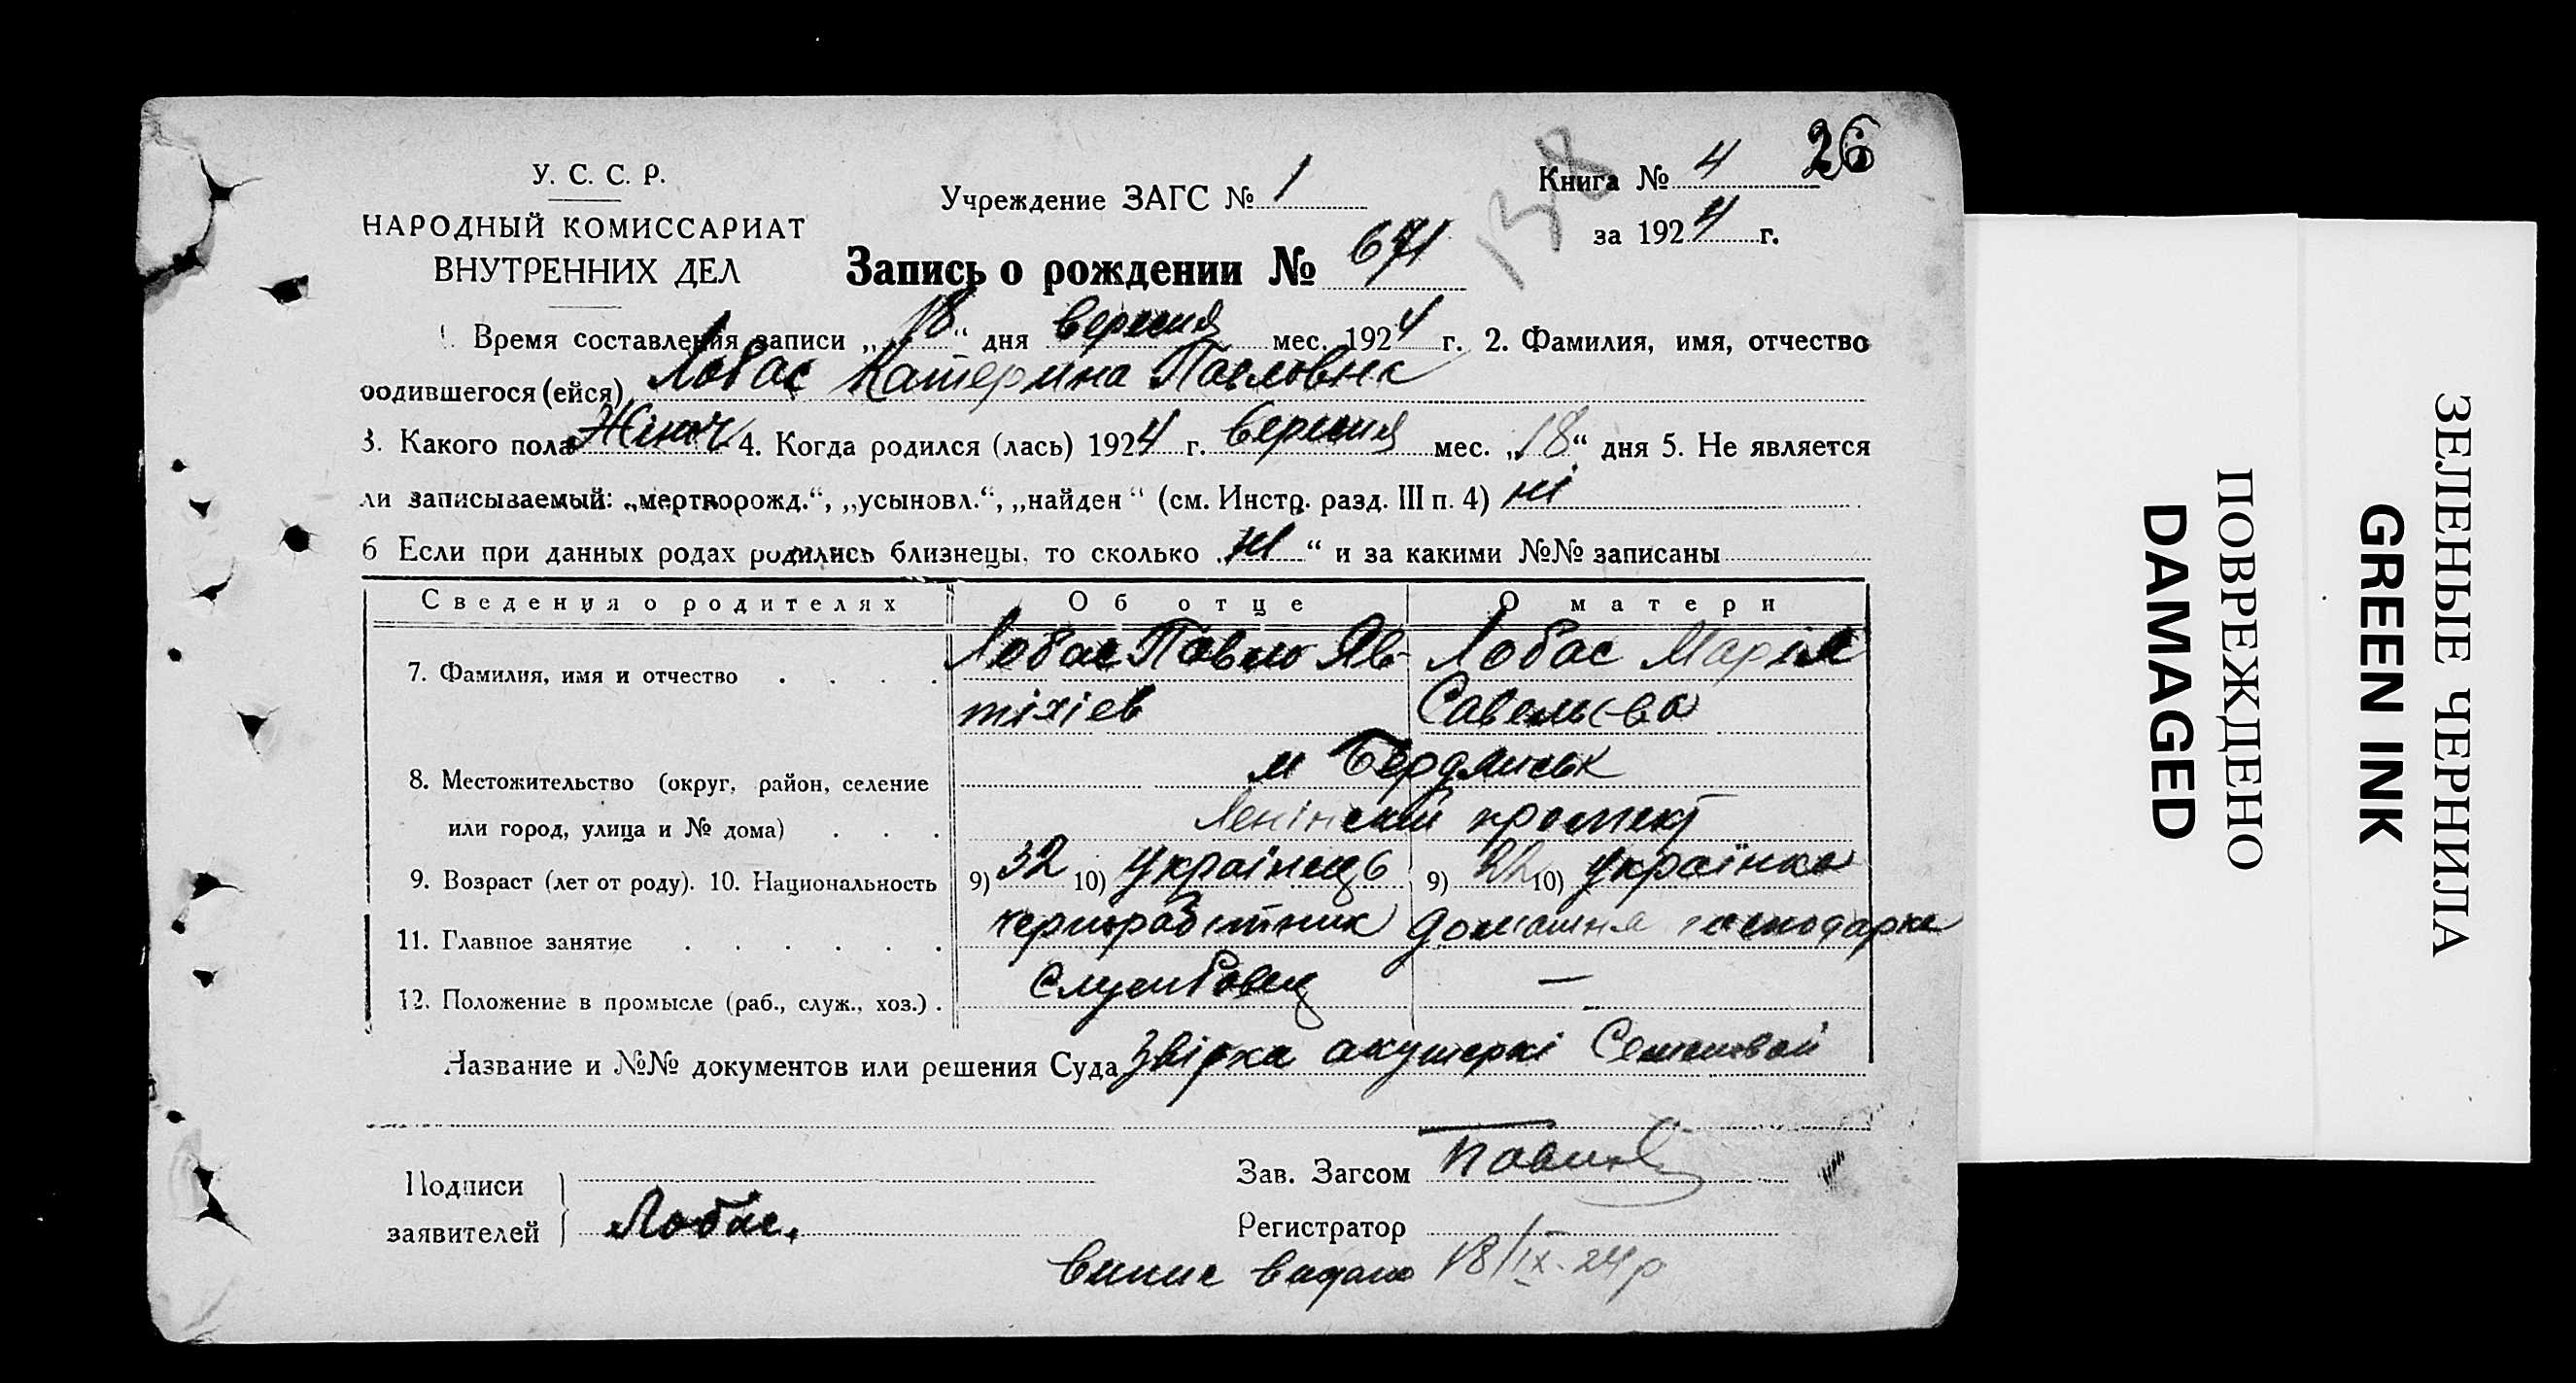 26
У. С. С. Р.
НАРОДНЫЙ КОМИССАРИАТ
ВНУТРЕННИХ ДЕЛ
Учреждение ЗАГС № 1
Книга № 4
за 1924 г.
138
Запись о рождении № 671
1. Время составления записи „18“ дня вересня мес. 1924 г. 2. Фамилия, имя, отчество
родившегося (ейся) Лобас Катерина Павловна
3. Какого пола Жіноч 4. Когда родился (лась) 1924 г. вересня мес. „18“ дня 5. Не является
ли записываемый: „мертворожд.“, „усыновл.“, „найден“ (см. Инстр. разд. III п. 4) ні
6 Если при данных родах родились близнецы, то сколько „ні“ и за какими №№ записаны
Сведения о родителях Об отце О матери
7. Фамилия, имя и отчество . . . . Лобас Павло Яв- Лобас Марія
тіхіев Савельева
8. Местожительство (округ, район, селение м Бердянськ
или город, улица и № дома) . . . Ленінский проспект
9. Возраст (лет от роду). 10. Национальность 9) 32 10) Українець 9) 22 10) Українка
11. Главное занятие . . . . . . чернорабітник домашня господарка
12. Положение в промысле (раб., служ., хоз.) . службовец —
Название и №№ документов или решения Суда Звістка акушеркі Семеновой
Подписи
заявителей Лобас.
Зав. Загсом
Регистратор
Випис видано 18/IX-24р
ПОВРЕЖДЕНО
DAMAGED
ЗЕЛЕНЫЕ ЧЕРНИЛА
GREEN INK